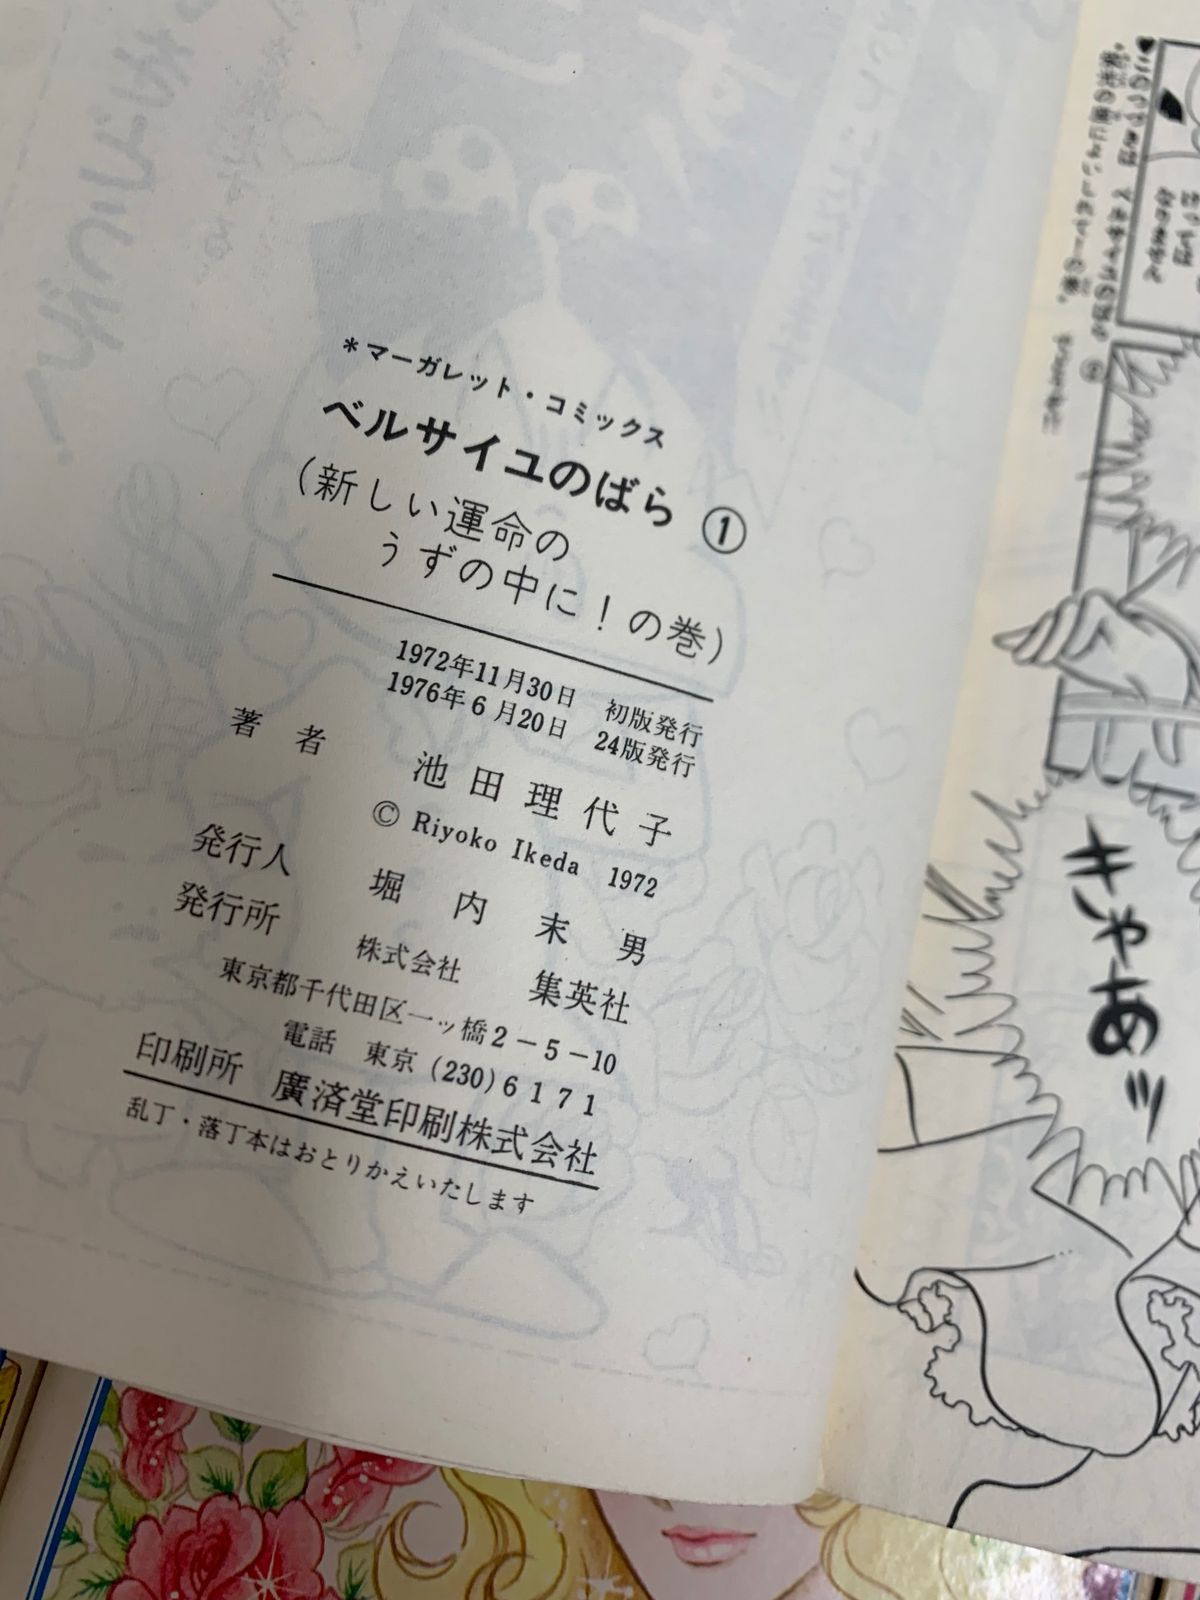 *マーガレット・コミックス
ベルサイユのばら ①
(新しい運命の
うずの中に!の巻)
1972年11月30日 初版発行
1976年6月20日 24版発行
著者 池田理代子
© Riyoko Ikeda 1972
発行人 堀内末男
発行所 株式会社 集英社
東京都千代田区一ッ橋2-5-10
電話 東京 (230) 6171
印刷所 廣済堂印刷株式会社
乱丁・落丁本はおとりかえいたします
♥このつづきは ベルサイユのばら
きゃあッ